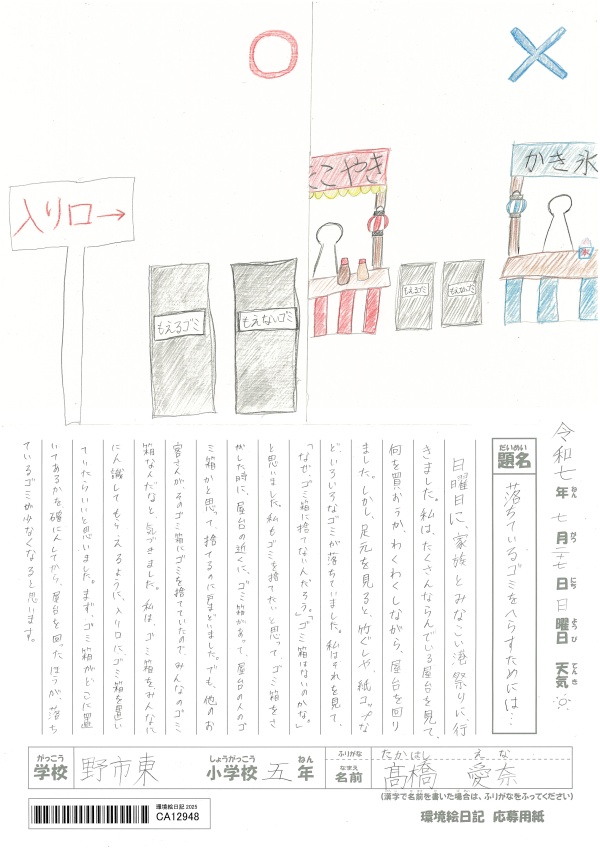 入り口→
もえるゴミ
もえないゴミ
たこやき
もえるゴミ
もえないゴミ
かき氷
氷
令和七年七月二十七日日曜日 天気
ねん
がつ
にち
ようび
てんき
だいめい
題名
落ちているゴミをへらすためには…
日曜日に、家族とみなこい港祭りに、行
きました。私は、たくさんならんでいる屋台を見て、
何を買おうか、わくわくしながら、屋台を回り
ました。しかし、足元を見ると、竹ぐしや、紙コップな
ど、いろいろなゴミが落ちていました。私はそれを見て、
「なぜ、ゴミ箱に捨てないんだろう。」「ゴミ箱はないのかな。」
と思いました。私もゴミを捨てたいと思って、ゴミ箱をさ
がした時に、屋台の近くに、ゴミ箱があって、屋台の人のゴ
ミ箱かと思って、捨てるのに戸まどいました。でも、他のお
客さんが、そのゴミ箱にゴミを捨てていたので、みんなのゴミ
箱なんだなと、気づきました。私は、ゴミ箱を、みんなに
にん識してもらえるように、入り口にゴミ箱を置い
ていたらいいと思いました。まず、ゴミ箱がどこに置
いてあるかを確にんしてから、屋台を回ったほうが、落ち
ているゴミが少なくなると思います。
がっこう
学校
野市東
しょうがっこう
小学校
五
ねん
年
ふりがな
たかはし えな
なまえ
名前
髙橋 愛奈
(漢字で名前を書いた場合は、ふりがなをふってください)
環境絵日記 2025
CA12948
環境絵日記 応募用紙